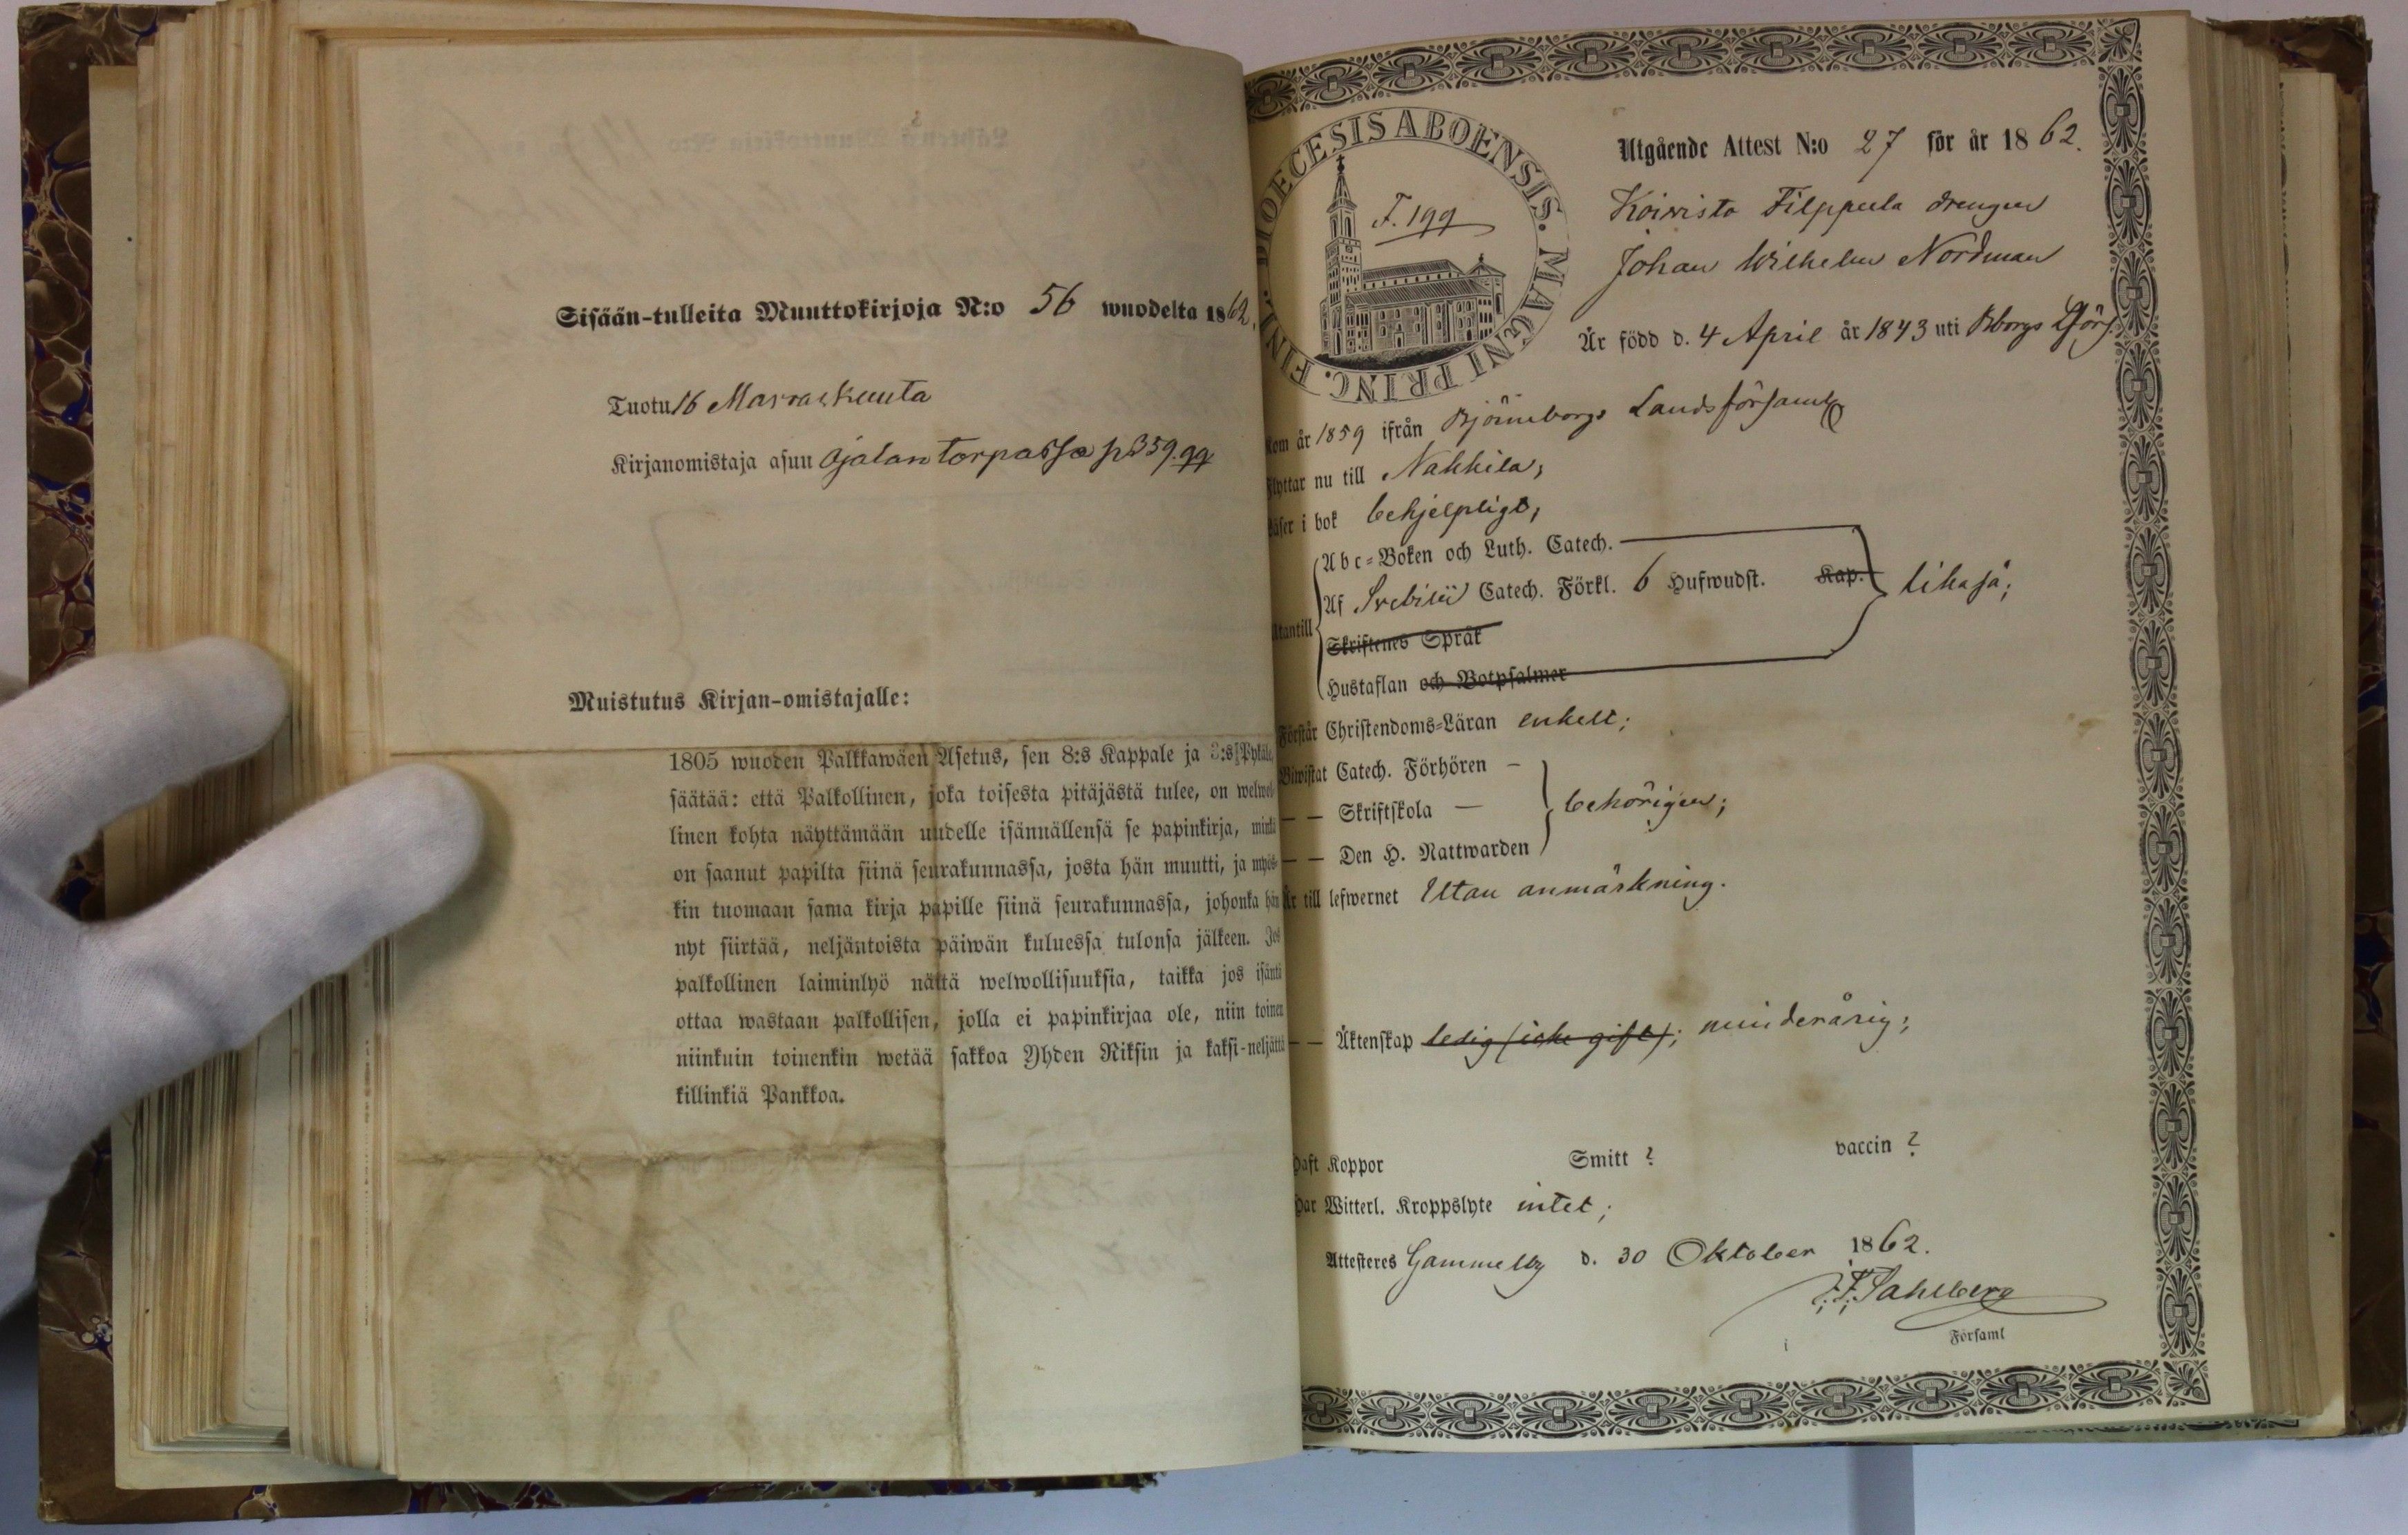 Sisään-tulleita Muuttokirjoja N:o 56 wuodelta 1862.
Tuotu 16 Marraskuuta
Kirjanomistaja asuu Ojalan torpassa p 359. 99
Muistutus Kirjan-omistajalle:
1805 wuoden Palkkawäen Asetus, sen 8:s Kappale ja 3:s Pykälä,
säätää: että Palkollinen, joka toisesta pitäjästä tulee, on welwol-
linen kohta näyttämään uudelle isännällensä se papinkirja, minkä
on saanut papilta siinä seurakunnassa, josta hän muutti, ja myös-
kin tuomaan sama kirja papille siinä seurakunnassa, johonka hän
nyt siirtää, neljäntoista päiwän kuluessa tulonsa jälkeen. Jos
palkollinen laiminlyö näitä welwollisuuksia, taikka jos isäntä
ottaa wastaan palkollisen, jolla ei papinkirjaa ole, niin toinen
niinkuin toinenkin wetää sakkoa Yhden Riksin ja kaksi-neljättä
killinkiä Pankkoa.
DIOECESIS ABOENSIS. MAGNI PRINC. FINL.
F. 199
Utgående Attest N:o 27 för år 1862.
Koivisto Filppula drengen
Johan Wilhelm Nordman
Är född d. 4 April år 1843 uti Bborgs Lförs.
Kom år 1859 ifrån Björneborgs Landsförsaml
Flyttar nu till Nakkila;
Läser i bok behjelpligt;
Utantill
Abc-Boken och Luth. Catech.
Af Svebilii Catech. Förkl. 6 Hufwudst. Kap. likaså;
Skriftenes Språk
Hustaflan och Botpsalmer
Förstår Christendoms-Läran enkelt;
Biwistat Catech. Förhören –
— — Skriftskola — behörigen;
— — Den H. Nattwarden
Är till lefwernet Utan anmärkning.
— — Äktenskap ledig (icke gift); minderårig;
Haft Koppor Smitt ? vaccin ?
Har Witterl. Kroppslyte intet;
Attesteres Gammelby d. 30 Oktober 1862.
J. F. Sahlberg
i Församl